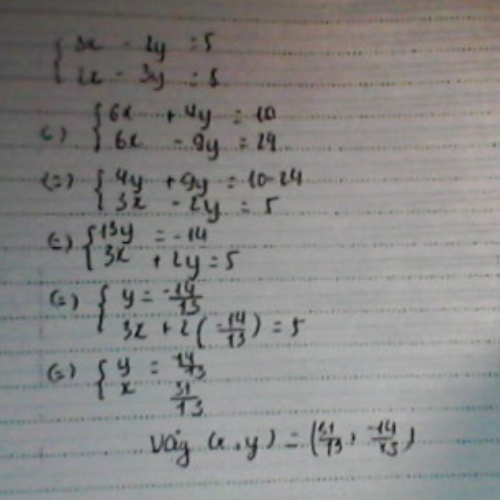 { 3x - 2y = 5
{ 2x - 3y = 5
(=) { 6x + 4y = 10
{ 6x - 9y = 24
(=) { 4y + 9y = 10-24
{ 3x - 2y = 5
(=) { 13y = -14
{ 3x + 2y = 5
(=) { y = -14/13
{ 3x + 2(-14/13) = 5
(=) { y = 14/13
{ x 31/13
Vậy (x, y) = (31/13, -14/13)